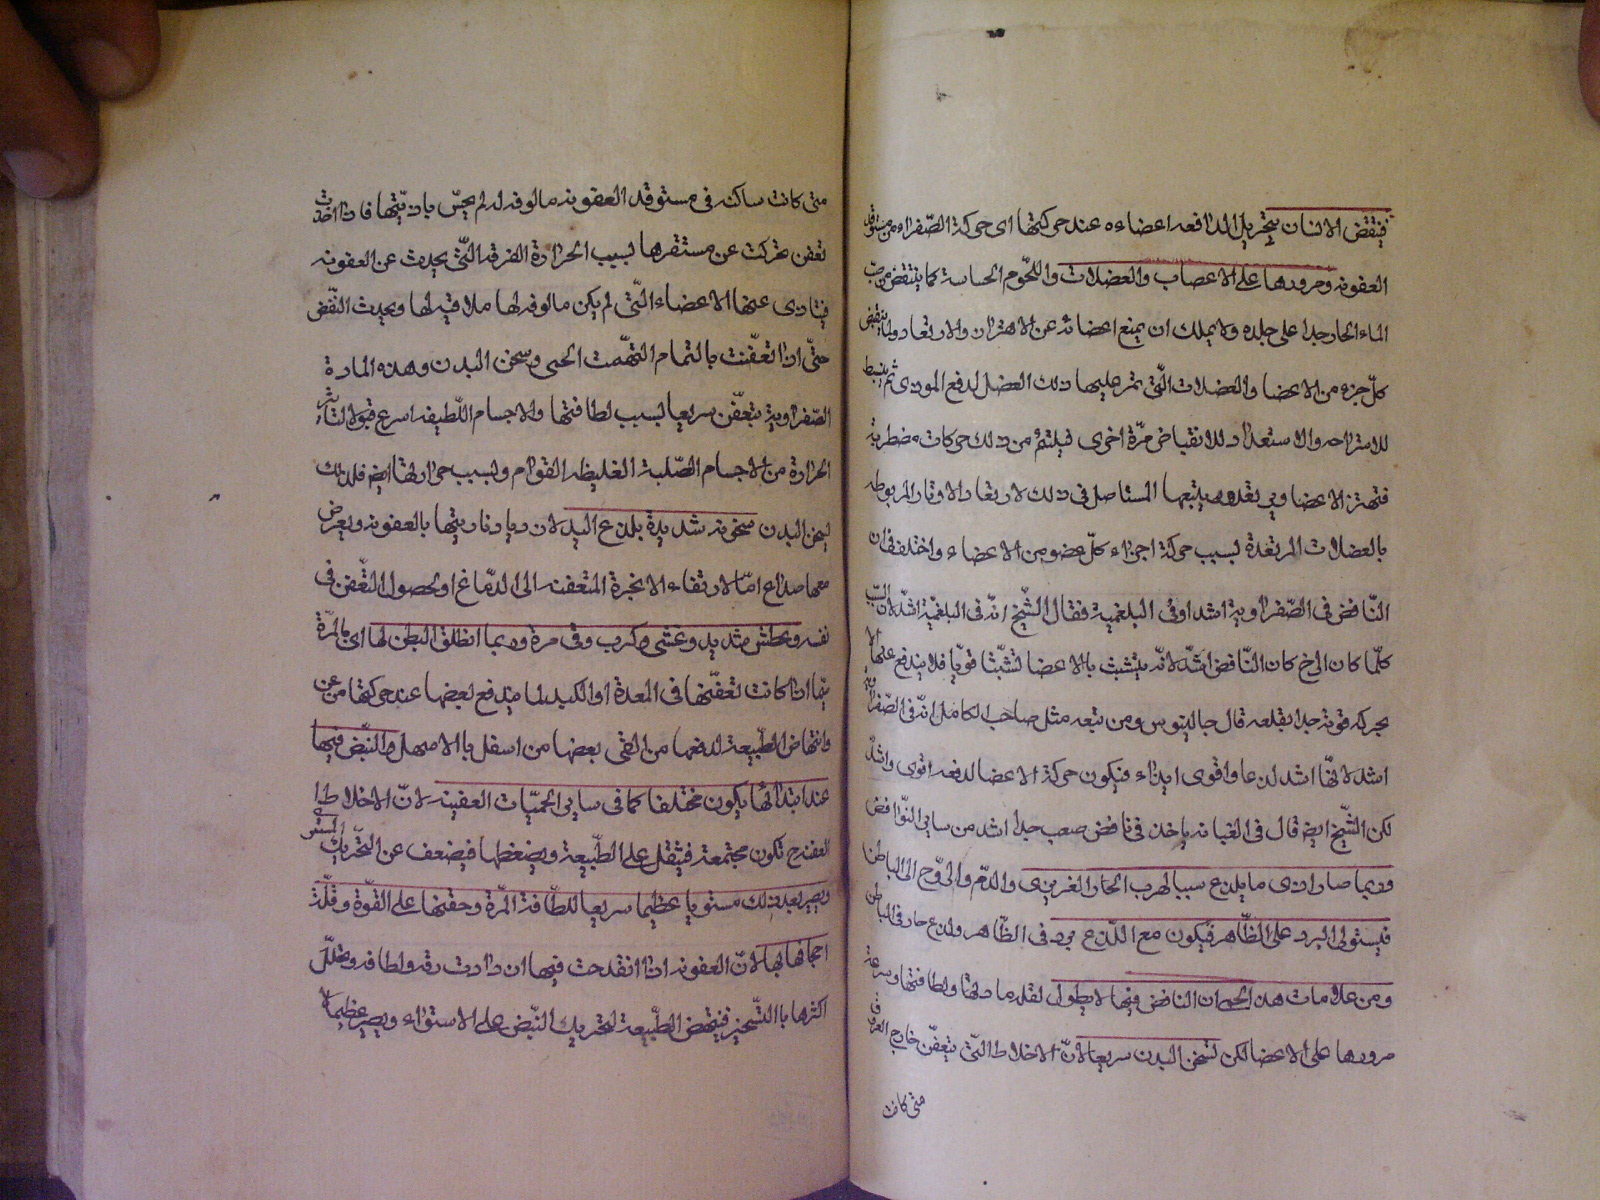 فينقض الانسان بتحريك الدافعه اعضاءه عند حركتها اى حركة الصّفراء من مستوقد
العفونه ومرورها على الاعصاب والعضلات واللّحوم الحساسة كما ينتقض من صبّ
الماء الحار جدا على جلده ولا يملك ان يمنع اعضائه عن الاهتزاز والارتعاد وانما ينقبض
كلّ جزء من الاعضا والعضلات الّتى تمر عليها ذلك العضل لدفع الموذى ثم ينبسط
للاستراحه والاستعداد للانقباض مرّة اخرى فيلتئم من ذلك حركات مضطربة
فتهتز الاعضا ويرتعد ويتبعها المفاصل فى ذلك لارتعاد الاوتار المربوطه
بالعضلات المرتعدة بسبب حركة اجزاء كلّ عضو من الاعضاء واختلف فى ان
النّافض فى الصّفراوية اشد او فى البلغمية فقال الشّيخ انّه فى البلغمية اشدّ لان السبب
كلّما كان الزج كان النّافض اشدّ لانّه يتشبث بالاعضا تشبّثا قويّا فلا يندفع عنها الا
بحركه قويه جدا بقلعه قال جالينوس ومن تبعه مثل صاحب الكامل انّه فى الصّفراويه
اشد لانّها اشد لذعا واقوى ايذاء فيكون حركة الاعضا لدفعه اقوى واشدّ
لكن الشّيخ ايضا قال فى الغب انه ياخذ فى نافض صعب جدا اشد من ساير النّوافض
وربما صار اذى ما يلذع سببا لهرب الحار الغريزى والدّم والرّوح الى الباطن
فيستولى البرد على الظّاهر فيكون مع اللّذع برد فى الظّاهر ولذع حار فى الباطن
ومن علامات هذه الحمى ان النافض فيها لا يطول لقلة مادتها ولطافتها وسرعة
مرورها على الاعضا لكن تسخن البدن سريعا لانّ الاخلاط الّتى يتعفّن خارج العروق
متى كانت
متى كانت ساكنه فى مستوقد العفونه مالوفه له لم يحسّ باذيّتها فاذا اخذت
تعفن تحركت عن مستقرها بسبب الحرارة الغريبه الّتى يحدث عن العفونه
فيتاذى عنها الاعضاء الّتى لم يكن مالوفه لها ملاقيه لها ويحدث النّفض
حتّى اذا تعفّنت بالتمام التهبت الحمى وسخن البدن وهذه المادة
الصّفراوية يتعفّن سريعا بسبب لطافتها والاجسام اللّطيفه اسرع قبولا لتاثير
الحرارة من الاجسام الصّلبة الغليظه القوام وبسبب حرارتها ايضا فلذلك
يسخن البدن سخونه شديدة يلذع اليد لازدياد ناريتها بالعفونه ويعرض
معها صداع امّا لارتفاء الابخرة المتعفنه الى الدّماغ او لحصول التّعفن فى
نفسه وعطش شديد وغشى وكرب وقى مرة وربما انطلق البطن لها اى بالمرّة
سيّما اذا كانت تعفّنها فى المعدة او الكبد لما يندفع بعضها عند حركتها من
وانتهاض الطّبيعة لدفعها من القى بعضها من اسفل بالاسهل والنّبض فيها
عند ابتدائها يكون مختلفا كما فى ساير الحميّات العفنية لانّ الاخلاط
العفنه ح تكون مجتمعة فيثقل على الطّبيعة ويضغطها فيضعف عن التّحريك المستوى
ويصير بعد ذلك مستويا عظيما سريعا للطافة المرّة وخفتها على القوّة وقلّة
اجحافها بها لانّ العفونه اذا انقدحت فيها ازدادت رقه ولطافه وتحلّل
اكثرها بالتّبخير فينهض الطّبيعة لتحريك النّبض على الاستواء ويصير عظيما